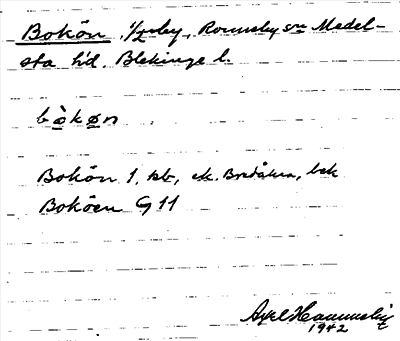 Bokön, 1/2 by, Ronneby sn Medel-
sta hd. Blekinge l.
bòkøn
Bokön 1, kb, ek. Bredåkra, bek
Boköen G 11
Axel
1942